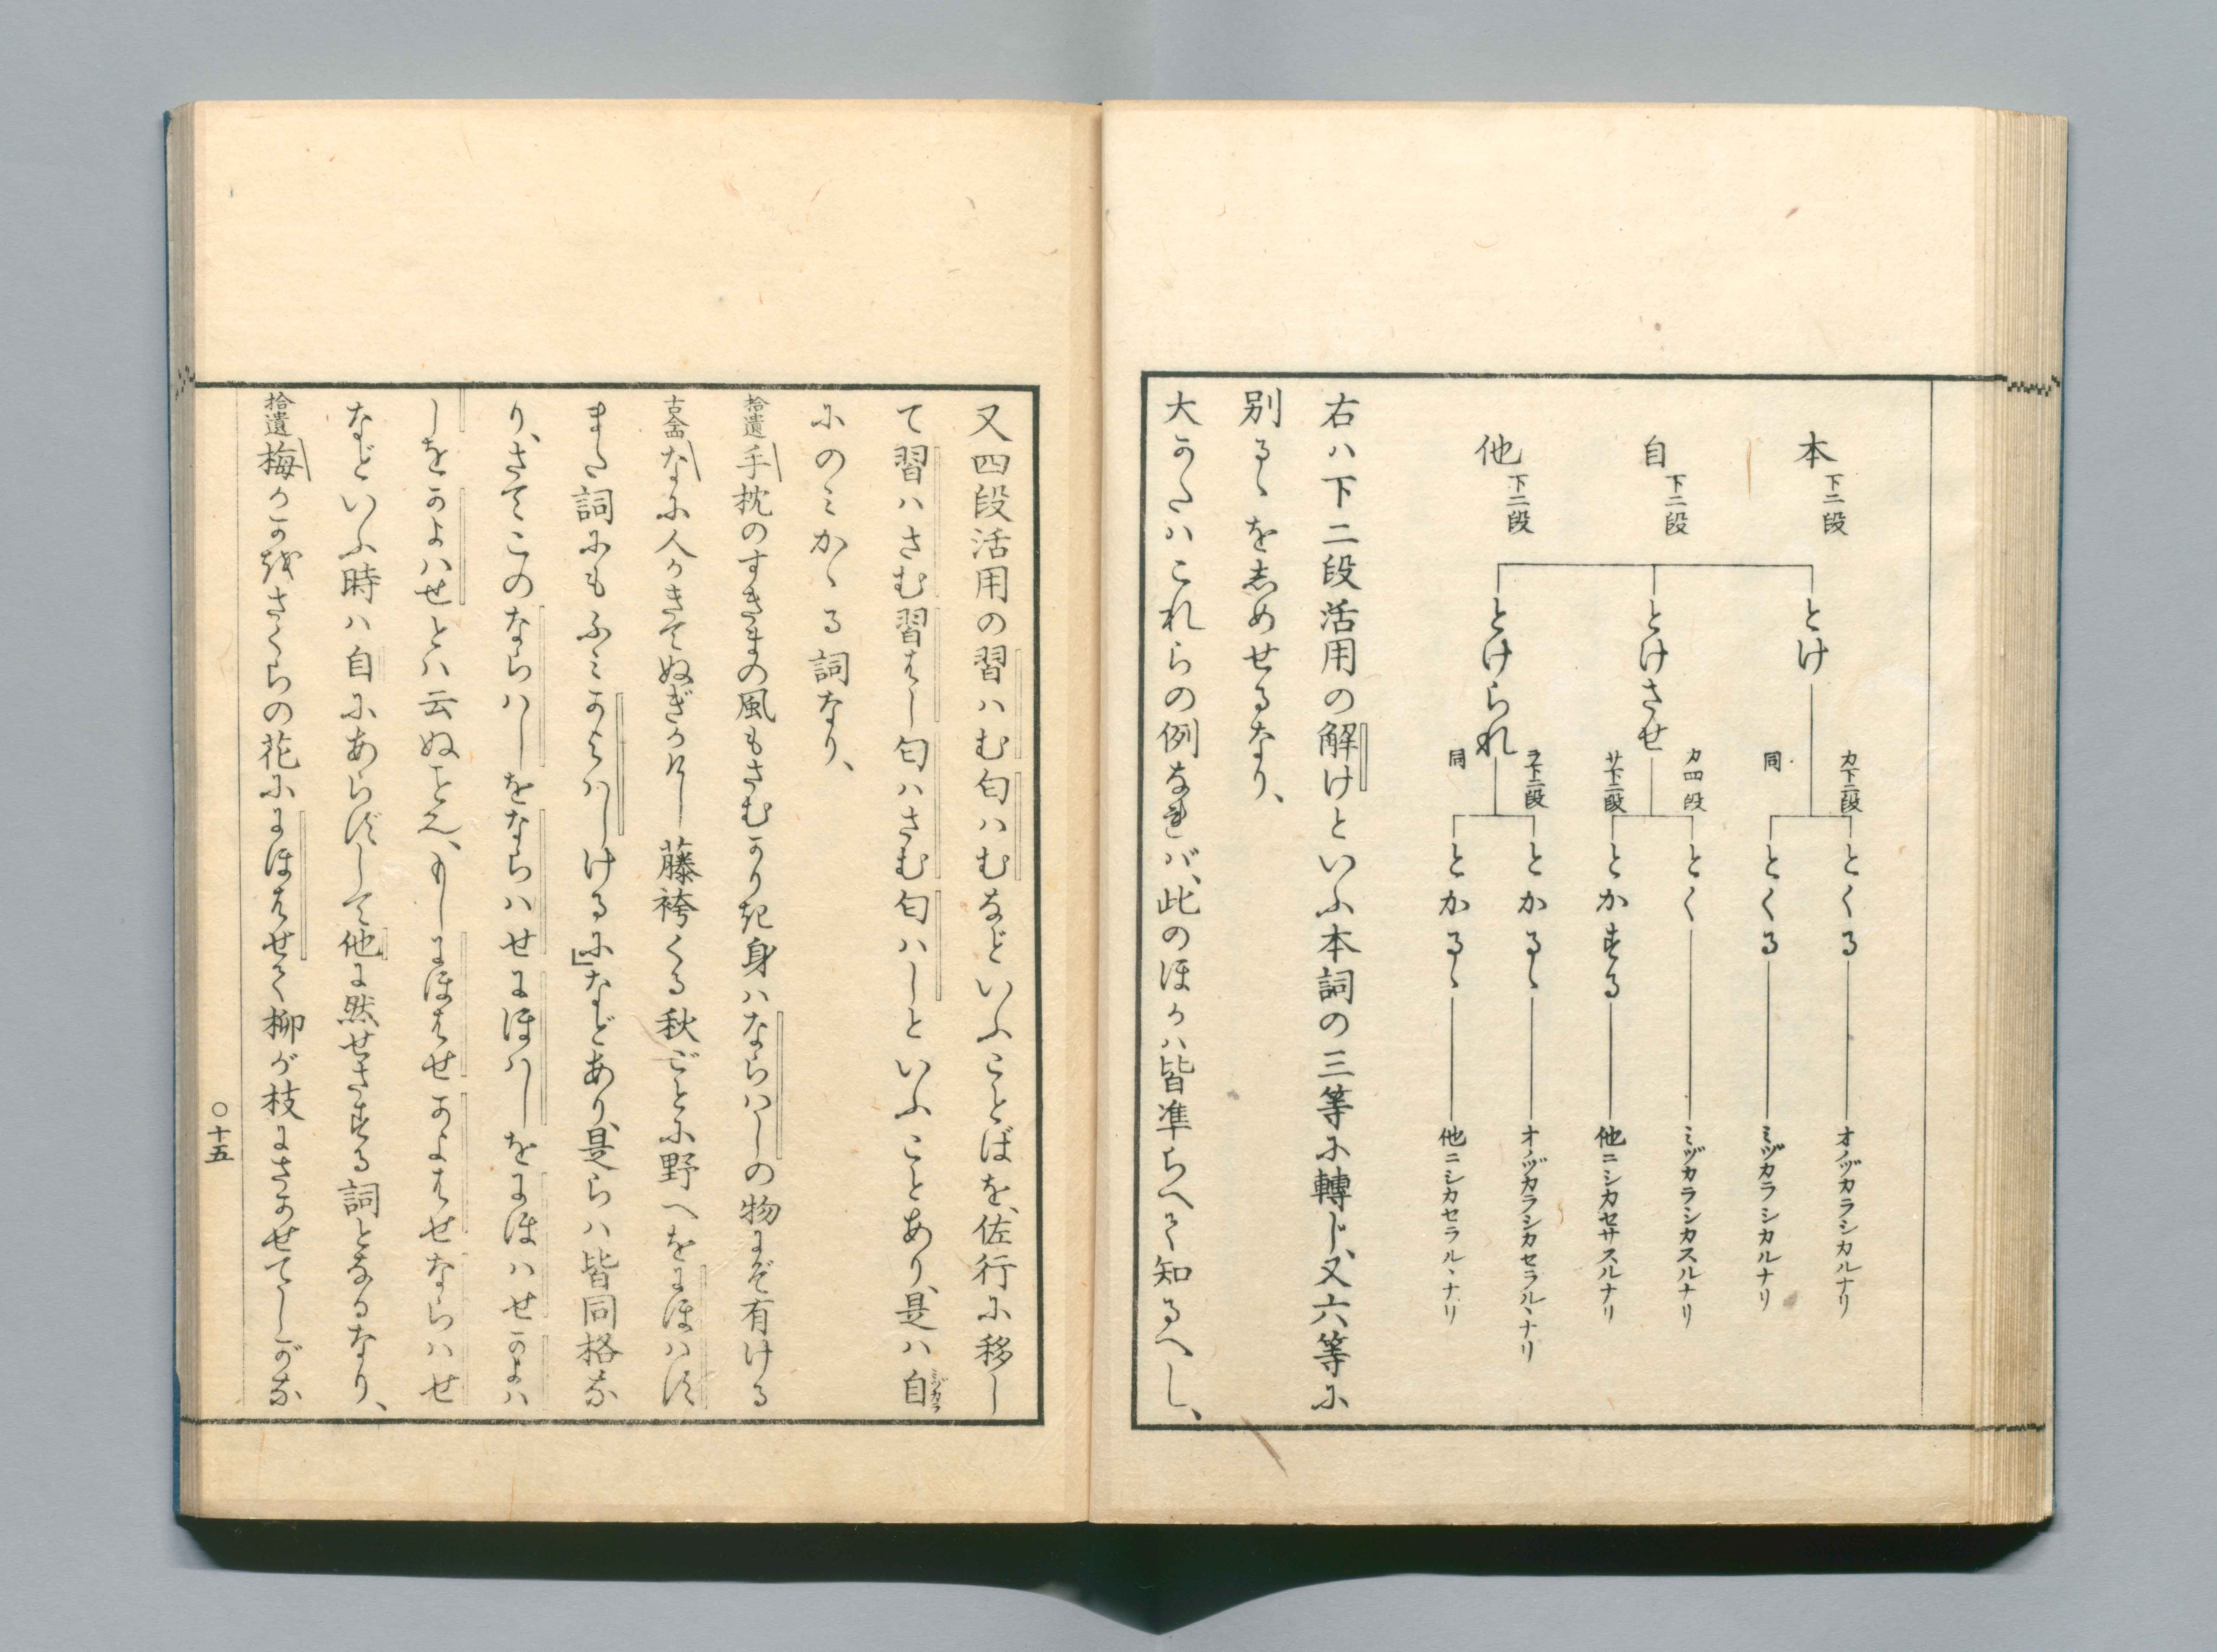 本 下二段
自 下二段
他 下二段
とけ
とけさせ
とけられ
カ下二段 とくる オノヅカラシカルナリ
同 とくる ミヅカラシカルナリ
カ四段 とく ミヅカラシカスルナリ
サ下二段 とかする 他ニシカセサスルナリ
ラ下二段 とかるゝ オノヅカラシカセラルヽナリ
同 とかるゝ 他ニシカセラルヽナリ
右ハ下二段活用の解けといふ本詞の三等に轉じ、又六等に
別るゝを志めせるなり、
大かたハこれらの例なれバ、此のほかハ皆準らへて知るへし、
又四段活用の習ハむ匂ハむなどいふことばを、佐行に移し
て習ハさむ習はし匂ハさむ匂ハしといふことあり、是ハ自ミヅカラ
にのミかゝる詞なり、
拾遺 手枕のすきまの風もさむかりき身ハならハしの物にぞ有ける
古今四 なに人かきてぬぎかけし藤袴くる秋ごとに野へをにほハす
また詞にもふミかよハしけるに」などあり、是らハ皆同格な
り、さてこのならハしをならハせにほハしをにほハせかよハ
しをかよハせとハ云ぬことそ、もしにほはせかよはせならハせ
などいふ時ハ自にあらずして他に然せさする詞となるなり、
拾遺 梅かかをさくらの花ににほはせて柳が枝にさかせてしがな
○十五